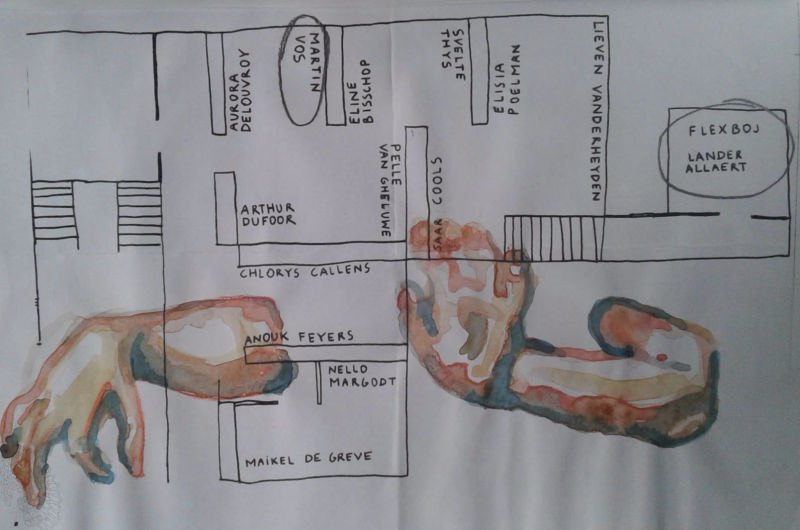 AURORA
DELOUVROY
MARTIN
VOS
ELINE
BISSCHOP
SVELTE
THYS
ELISIA
POELMAN
LIEVEN VANDERHEYDEN
FLEXBOJ
LANDER
ALLAERT
ARTHUR
DUFOOR
PELLE
VAN GHELUWE
SAAR COOLS
CHLORYS CALLENS
ANOUK FEYERS
NELLO
MARGODT
MAIKEL DE GREVE